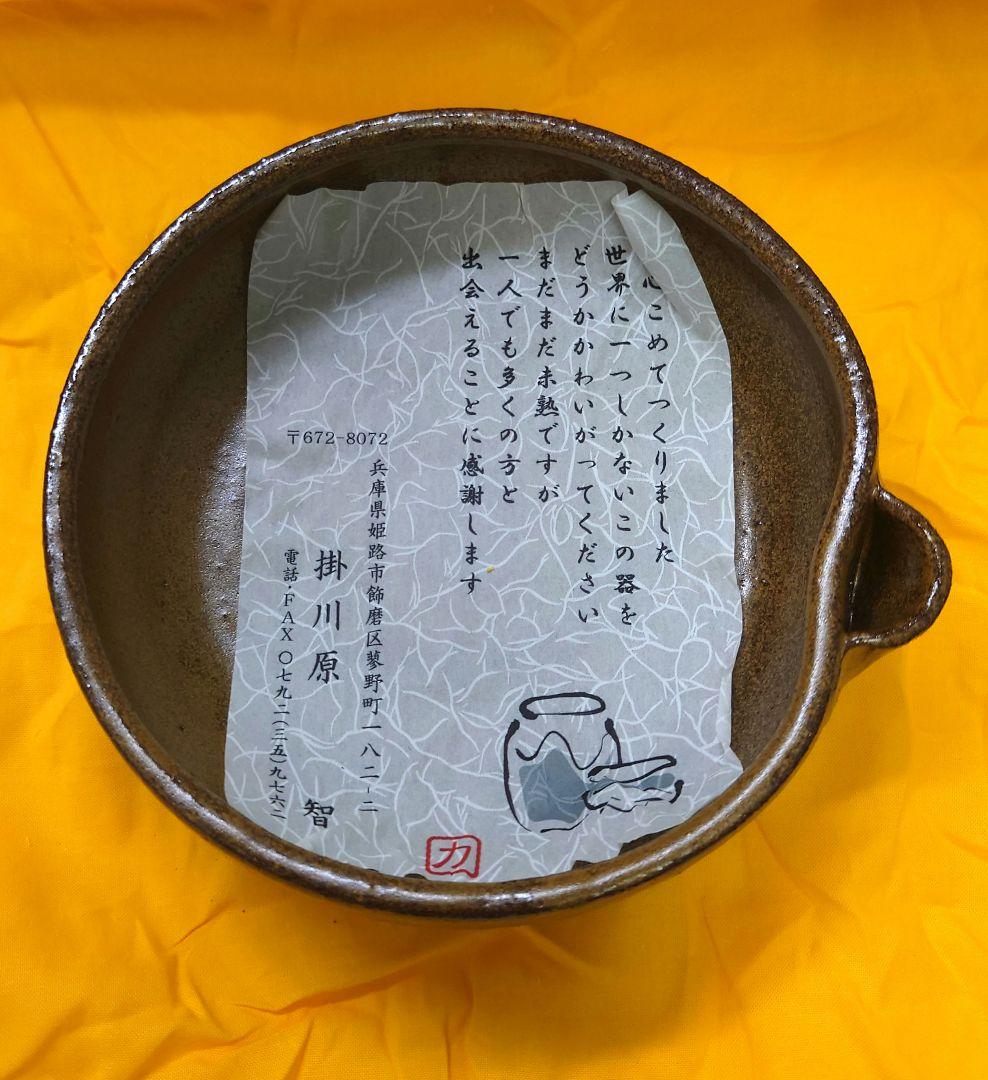 心こめてつくりました
世界に一つしかないこの器を
どうかかわいがってください
まだまだ未熟ですが
一人でも多くの方と
出会えることに感謝します
〒672-8072
兵庫県姫路市飾磨区蓼野町一八二-二
掛川原 智
電話・FAX 〇七九二(三五)九七六二
カ